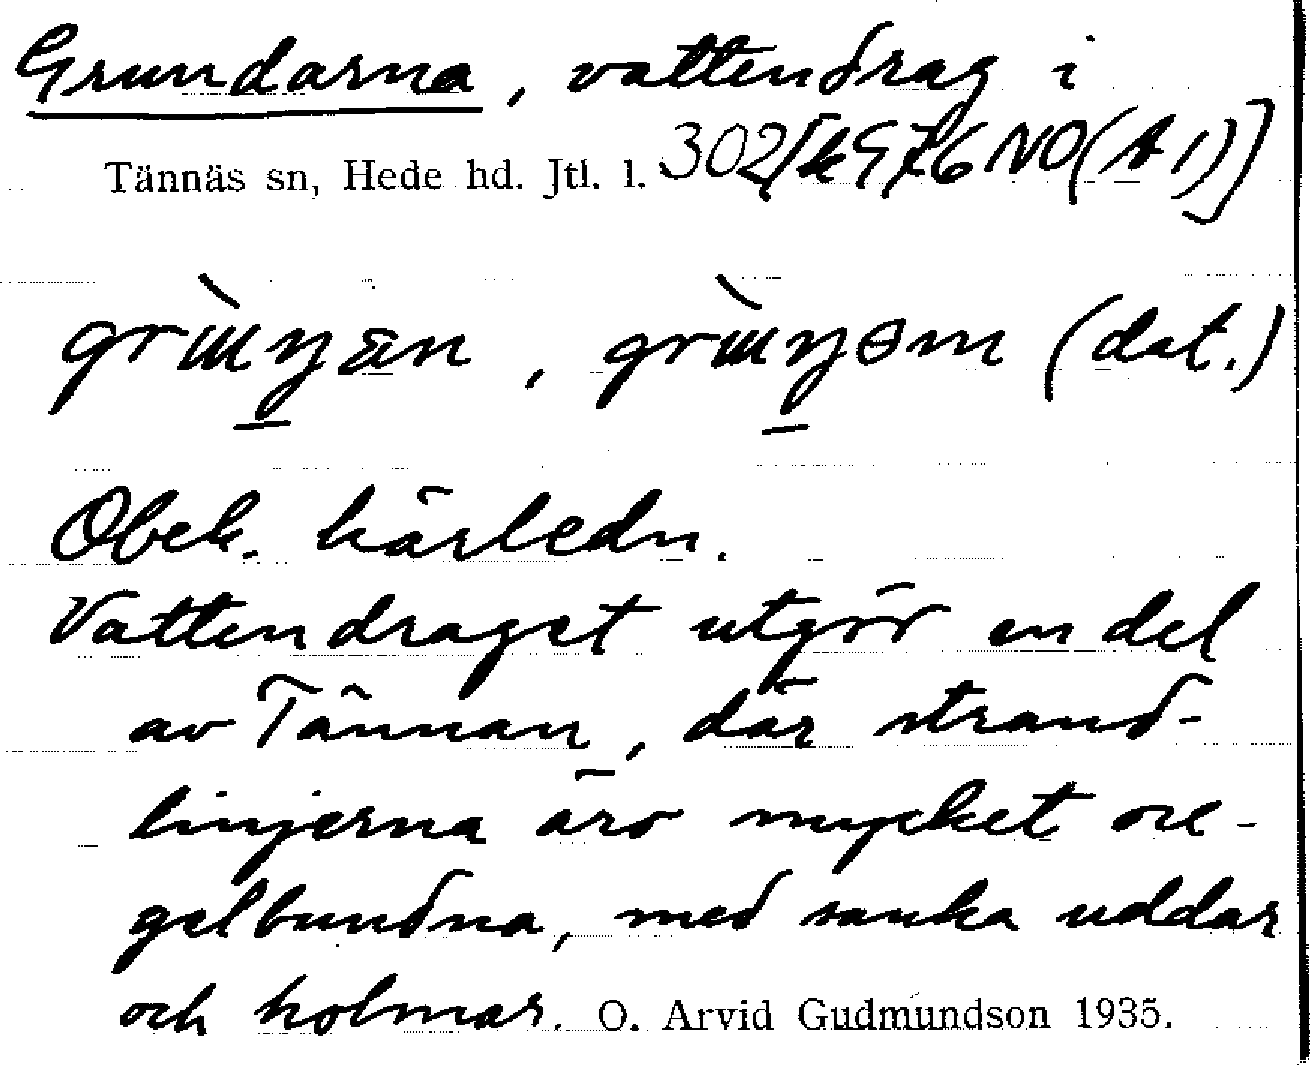 Grundarna, vattendrag i
Tännäs sn, Hede hd. Jtl. l. 302
(dat.)
Obek. härledn.
Vattendraget utgör en del
av Tännan, där strand-
linjerna äro mycket ore-
gelbundna, med sanka uddar
och holmar. O. Arvid Gudmundson 1935.